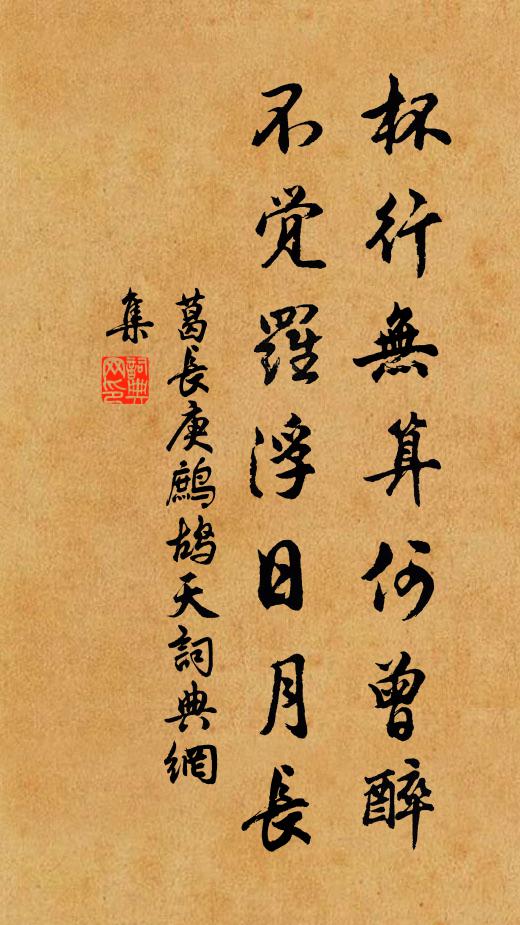 杯行無算何曾醉
不覚羅浮日月長
葛長庚鷓鴣天詞典網
集
詞典网印